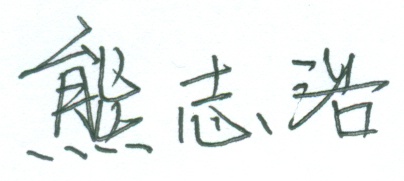 熊志浩